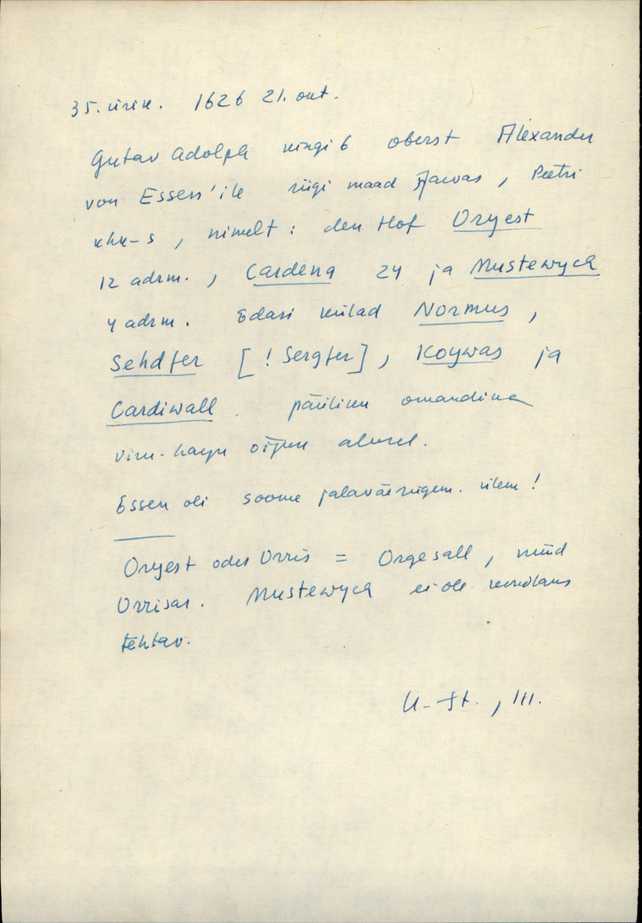 35. ürik. 1626 21. okt.
Gustav Adolph kingib oberst Alexander
von Essen'ile riigi maad Harjus, Peetri
khk-s, nimelt: den Hof Oryest
12 adrm., Cardena 24 ja Mustewyck
4 adrm. Edasi külad Normus,
Sehdfer [! Sergfer], Koywas ja
Cardiwall. päriliku omandina
viru-harju õiguse alusel.
Essen oli soome jalaväerügem. ülem!
Oryest oder Orris = Orgesall, nüüd
Orrisar. Mustewyck ei ole kindlaks
tehtav.
U-St., III.